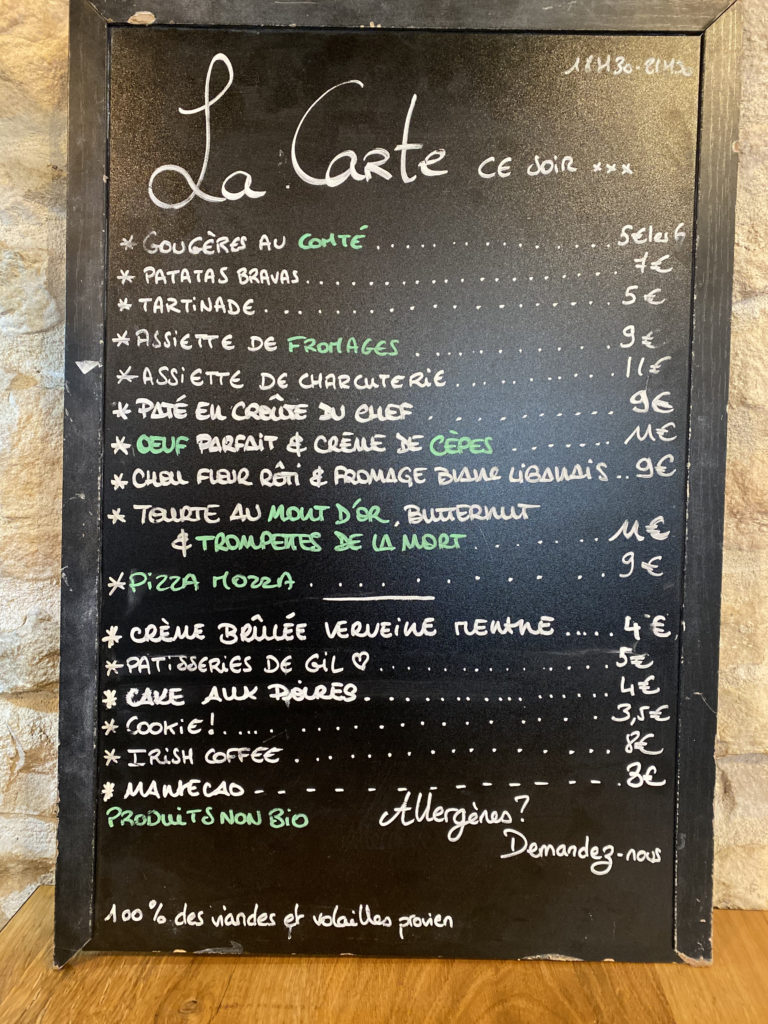 18H30-21H30
La Carte CE SOIR xxx
* GOUGÈRES AU COMTÉ .......... 5€ les 6
* PATATAS BRAVAS .......... 7€
* TARTINADE .......... 5€
* ASSIETTE DE FROMAGES .......... 9€
* ASSIETTE DE CHARCUTERIE .......... 11€
* PATÉ EN CROÛTE DU CHEF .......... 9€
* OEUF PARFAIT & CRÈME DE CÈPES ....... 11€
* CHOU FLEUR RÔTI & FROMAGE BLANC LIBANAIS .. 9€
* TOURTE AU MONT D'OR, BUTTERNUT
& TROMPETTES DE LA MORT .......... 11€
* PIZZA MOZZA .......... 9€
* CRÈME BRÛLÉE VERVEINE MENTHE ..... 4€
* PATISSERIES DE GIL ♡ .......... 5€
* CAKE AUX POIRES .......... 4€
* COOKIE! .......... 3,5€
* IRISH COFFEE .......... 8€
* MANTECAO - - - - - - - - - - 8€
PRODUITS NON BIO
Allergènes?
Demandez-nous
100% des viandes et volailles provien